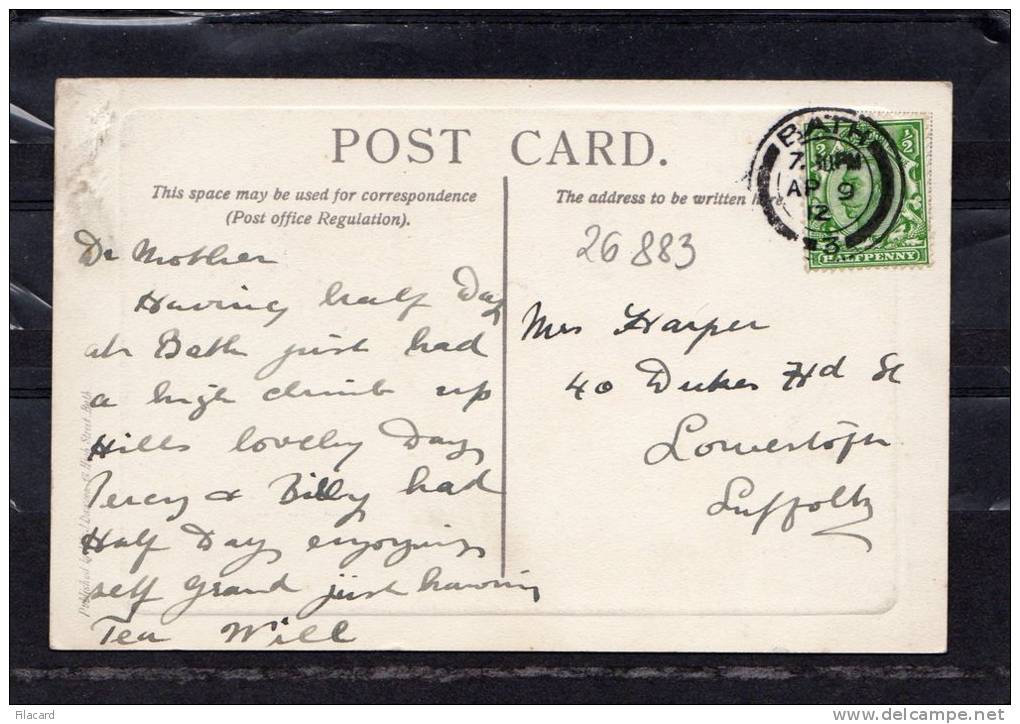 POST CARD.
This space may be used for correspondence
(Post office Regulation).
The address to be written here.
BATH
7. PM
AP 9
12
3
1/2
HALFPENNY
26883
Dr Mother
Having half Day
at Bath just had
a high climb up
Hills lovely Day
Percy & Billy had
Half Day enjoying
self grand just having
Tea Will
Mrs Harper
40 Dukes Hd St
Lowestoft
Suffolk
Published by
Street Bath
Filacard
delcampe.net